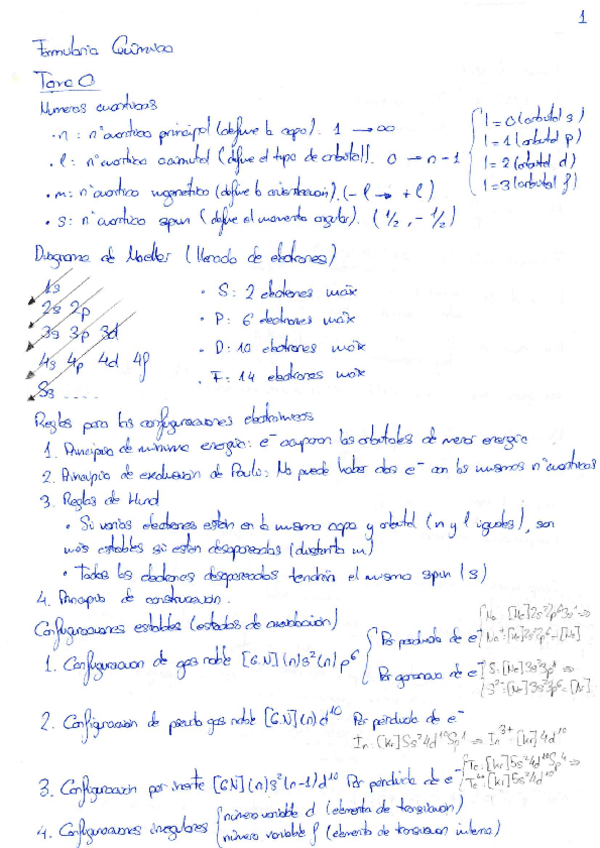 1
Formulario Química
Tema 0
Números cuánticos
· n : nº cuántico principal (define la capa). 1 → ∞
· l : nº cuántico azimutal (define el tipo de orbital). 0 → n - 1
l = 0 (orbital s)
l = 1 (orbital p)
l = 2 (orbital d)
l = 3 (orbital f)
· m: nº cuántico magnético (define la orientación). (- l → + l)
· s: nº cuántico spin (define el momento angular). (1/2, - 1/2)
Diagrama de Moeller (llenado de electrones)
1s
2s 2p
3s 3p 3d
4s 4p 4d 4f
5s ....
· S: 2 electrones máx
· P: 6 electrones máx
· D: 10 electrones máx
· F: 14 electrones máx
Reglas para las configuraciones electrónicas
1. Principio de mínima energía: e⁻ ocuparan los orbitales de menor energía
2. Principio de exclusión de Pauli: No puede haber dos e⁻ con los mismos nº cuánticos
3. Reglas de Hund
• Si varios electrones están en la misma capa y orbital (n y l iguales), son
más estables si están desapareados (distinto m)
• Todos los electrones desapareados tendrán el mismo spin (s)
4. Principio de construcción.
Configuraciones estables (estados de oxidación)
1. Configuración de gas noble [G.N] (n)s²(n)p⁶
Por perdida de e⁻
Na: [Ne]2s²2p⁶3s¹ ⇒
Na⁺: [He]2s²2p⁶ = [Ne]
Por ganancia de e⁻
S: [Ne]3s²3p⁴ ⇒
S²⁻: [Ne]3s²3p⁶ = [Ar]
2. Configuración de pseudo gas noble [G.N] (n)d¹⁰ Por pérdida de e⁻
In: [Kr]5s²4d¹⁰5p¹ ⇒ In³⁺: [Kr]4d¹⁰
3. Configuración par inerte [G.N] (n)s²(n-1)d¹⁰ Por pérdida de e⁻
Te: [Kr]5s²4d¹⁰5p⁴ ⇒
Te⁴⁺: [Kr]5s²4d¹⁰
4. Configuraciones irregulares
número variable d (elementos de transición)
número variable f (elementos de transición interna)